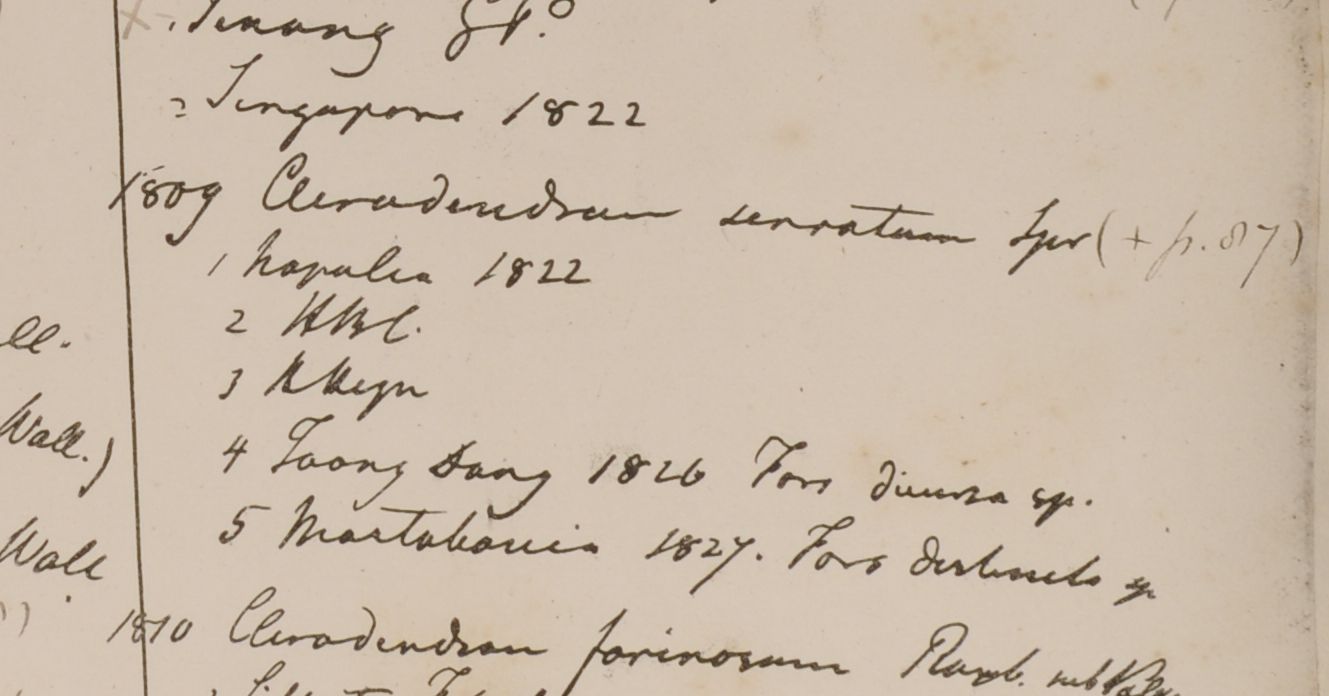 Penang GP.
2 Singapore 1822
1809 Clerodendrum serratum Spr (+ p. 87)
1 Napalia 1822
ll. 2 HBC.
3 HHeyn
Wall.) 4 Taong Dong 1826 Fors diversa sp.
5 Martabania 1827. Fors distincta sp
Wall
1810 Clerodendron farinosum Roxb. sub